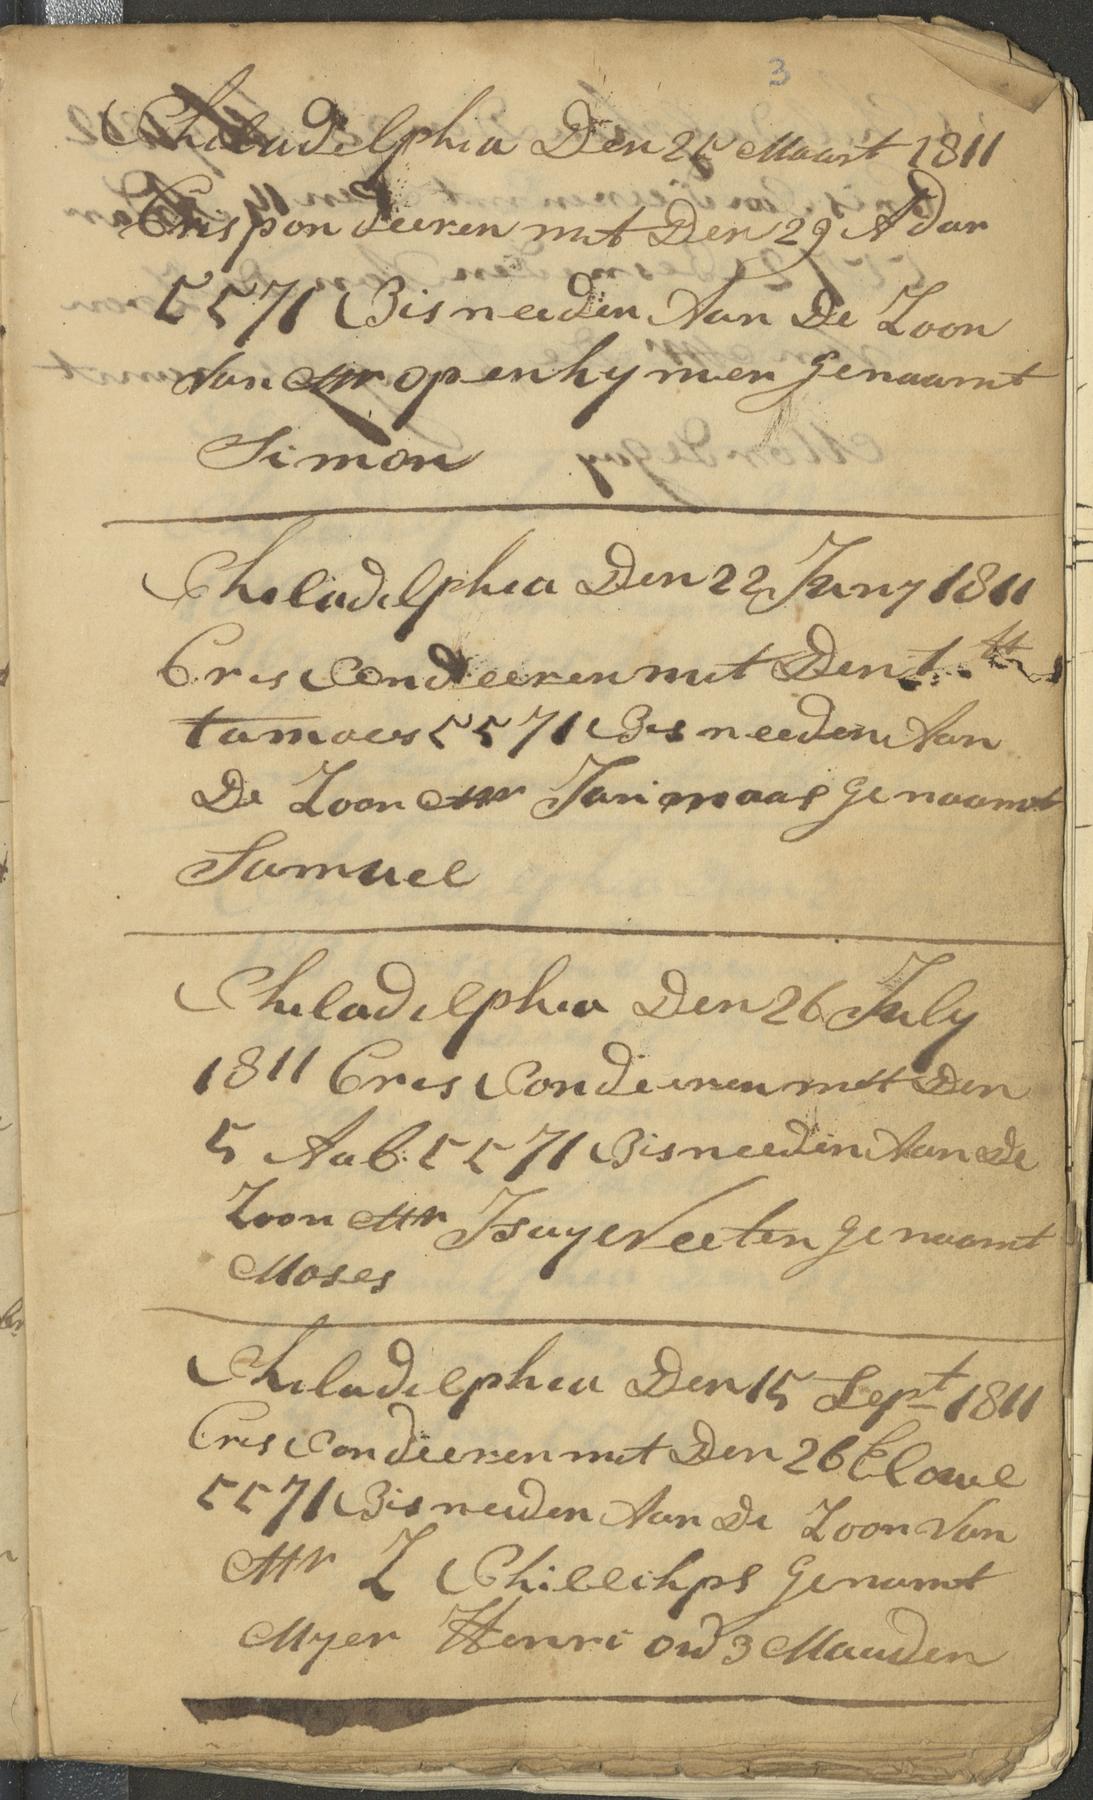 3
Philadelphia Den 25 Maart 1811
Crispondeeren mit Den 29 Adar
5571 Bisneeden Aan De Zoon
Van Mr openhymer genaamt
Simon
Philadelphia Den 22 Juny 1811
Criscondeeren mit Den 1
tamoes 5571 Bisneeden Aan
De Zoon Mr genaamt
Samuel
Philadelphia Den 26 July
1811 Criscondeeren mit Den
5 Aab 5571 Bisneeden Aan De
Zoon Mr genaamt
Moses
Philadelphia Den 15 Sept 1811
Criscondeeren mit Den 26 Elowl
5571 Bisneiden Aan De Zoon Van
Mr Z Phillihps genamt
Myer Henri owd 3 Maanden